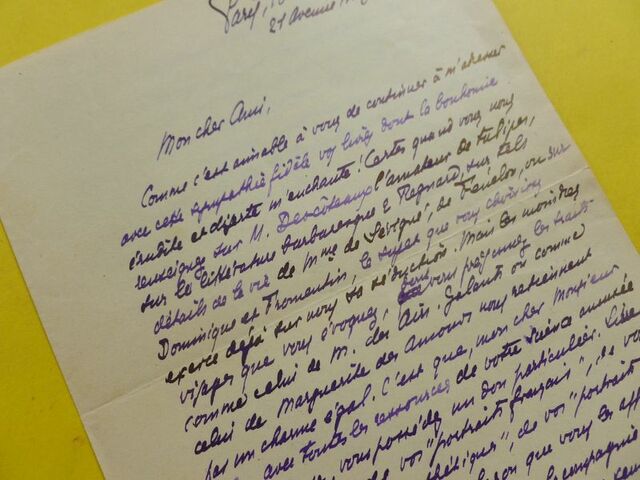 Paris,
21 Avenue
Mon cher Ami,
Comme c'est aimable à vous de continuer à m'adresser
avec cette sympathie fidèle vos livres dont la bonhomie
érudite et diserte m'enchante! Certes quand vous nous
renseignez sur M. Descôteaux l'amateur de tulipes,
sur la littérature barbaresque & Regnard, sur tels
détails de la vie de Mme de Sévigné, de Fénelon, ou sur
Dominique et Fromentin, le sujet que vous choisissez
exerce déjà sur nous sa séduction. Mais les moindres
visages que vous évoquez, dont vous frégonnez les traits
comme celui de M. des Airs-Galants ou comme
celui de Marguerite des amours nous retiennent
par un charme égal. C'est que, mon cher Monsieur
avec toutes les ressources de votre science amusée
vous possédez un don particulier.
de vos "portrait français", de vos
de vos "portrait
que vous les
compagnie